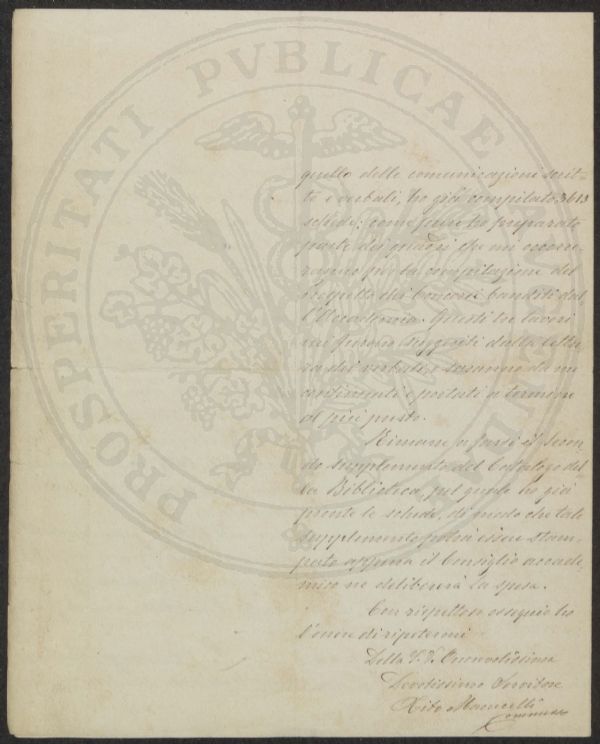 PROSPERITATI PVBLICAE AVGENDAE
quello delle comunicazioni scrit-
te e verbali, ho già compilato 3613
schede; come pure ho preparato
parte dei quadri che mi occorre-
ranno per la compilazione del
prospetto dei Concorsi banditi dal-
l'Accademia. Questi tre lavori
mi furono suggeriti dalla lettu-
ra dei verbali, e saranno da me
continuati e portati a termine
al più presto.
Rimane a farsi il secon-
do supplemento del Catalogo del-
la Biblioteca, pel quale ho già
pronte le schede, di modo che tale
supplemento potrà essere stam-
pato appena il Consiglio accade-
mico ne delibererà la spesa.
Con rispettoso ossequio ho
l'onore di ripetermi
Della S. V. Onorevolissima
Devotissimo Servitore